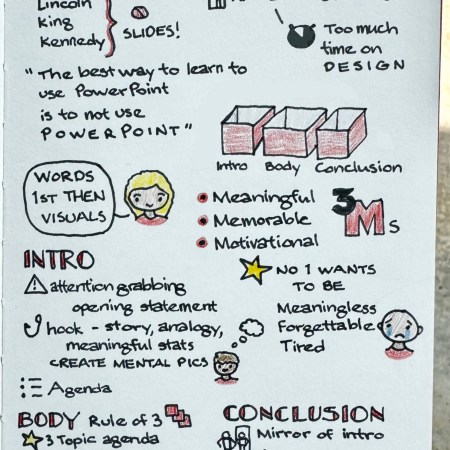 Lincoln
King
Kennedy
SLIDES!
Too much
time on
DESIGN
"The best way to learn to
use PowerPoint
is to not use
POWERPOINT"
Intro Body Conclusion
WORDS
1ST THEN
VISUALS
Meaningful
Memorable
Motivational
3Ms
INTRO
attention grabbing
opening statement
hook - story, analogy,
meaningful stats
CREATE MENTAL PICS
Agenda
NO 1 WANTS
TO BE
Meaningless
Forgettable
Tired
BODY Rule of 3
3 Topic agenda
CONCLUSION
Mirror of intro